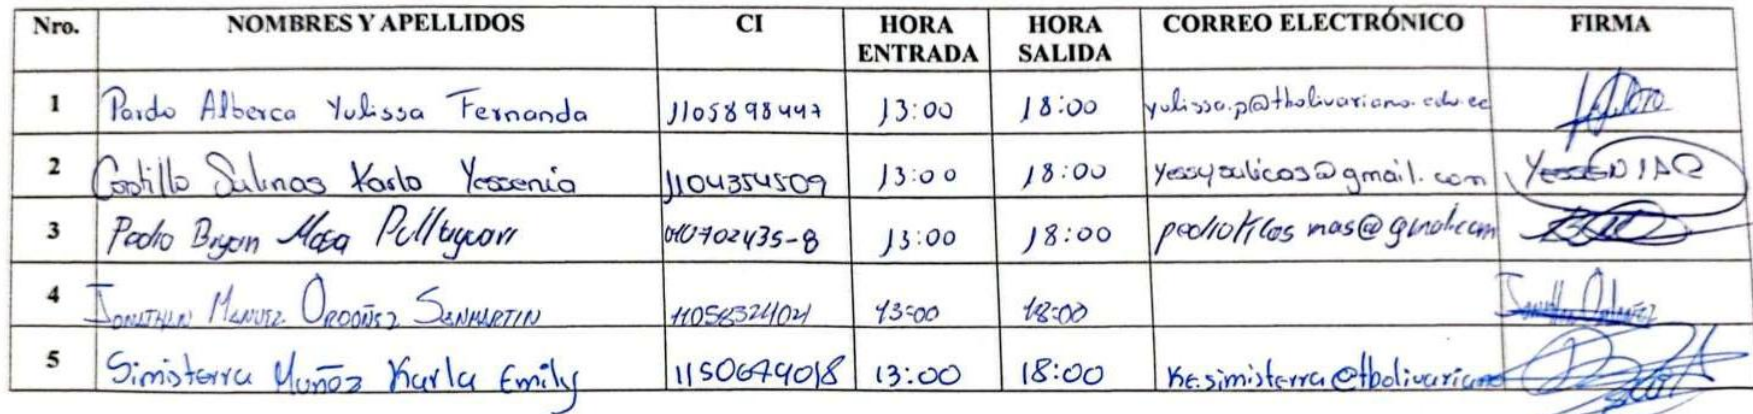 Nro. NOMBRES Y APELLIDOS CI HORA ENTRADA HORA SALIDA CORREO ELECTRÓNICO FIRMA
1 Pardo Alberca Yulissa Fernanda 1105898447 13:00 18:00 yulissa.p@tbolivariano.edu.ec
2 Castillo Salinas Karla Yessenia 1104354509 13:00 18:00 yessysalicas@gmail.com YESSENIA
3 Pedro Bryan Masa 13:00 18:00
4 JONATHAN MANUEL ORDOÑEZ SANMARTIN 13:00 18:00
5 Simisterra Muñoz Karla Emily 1150679018 13:00 18:00 Ke.simisterra@tbolivariano